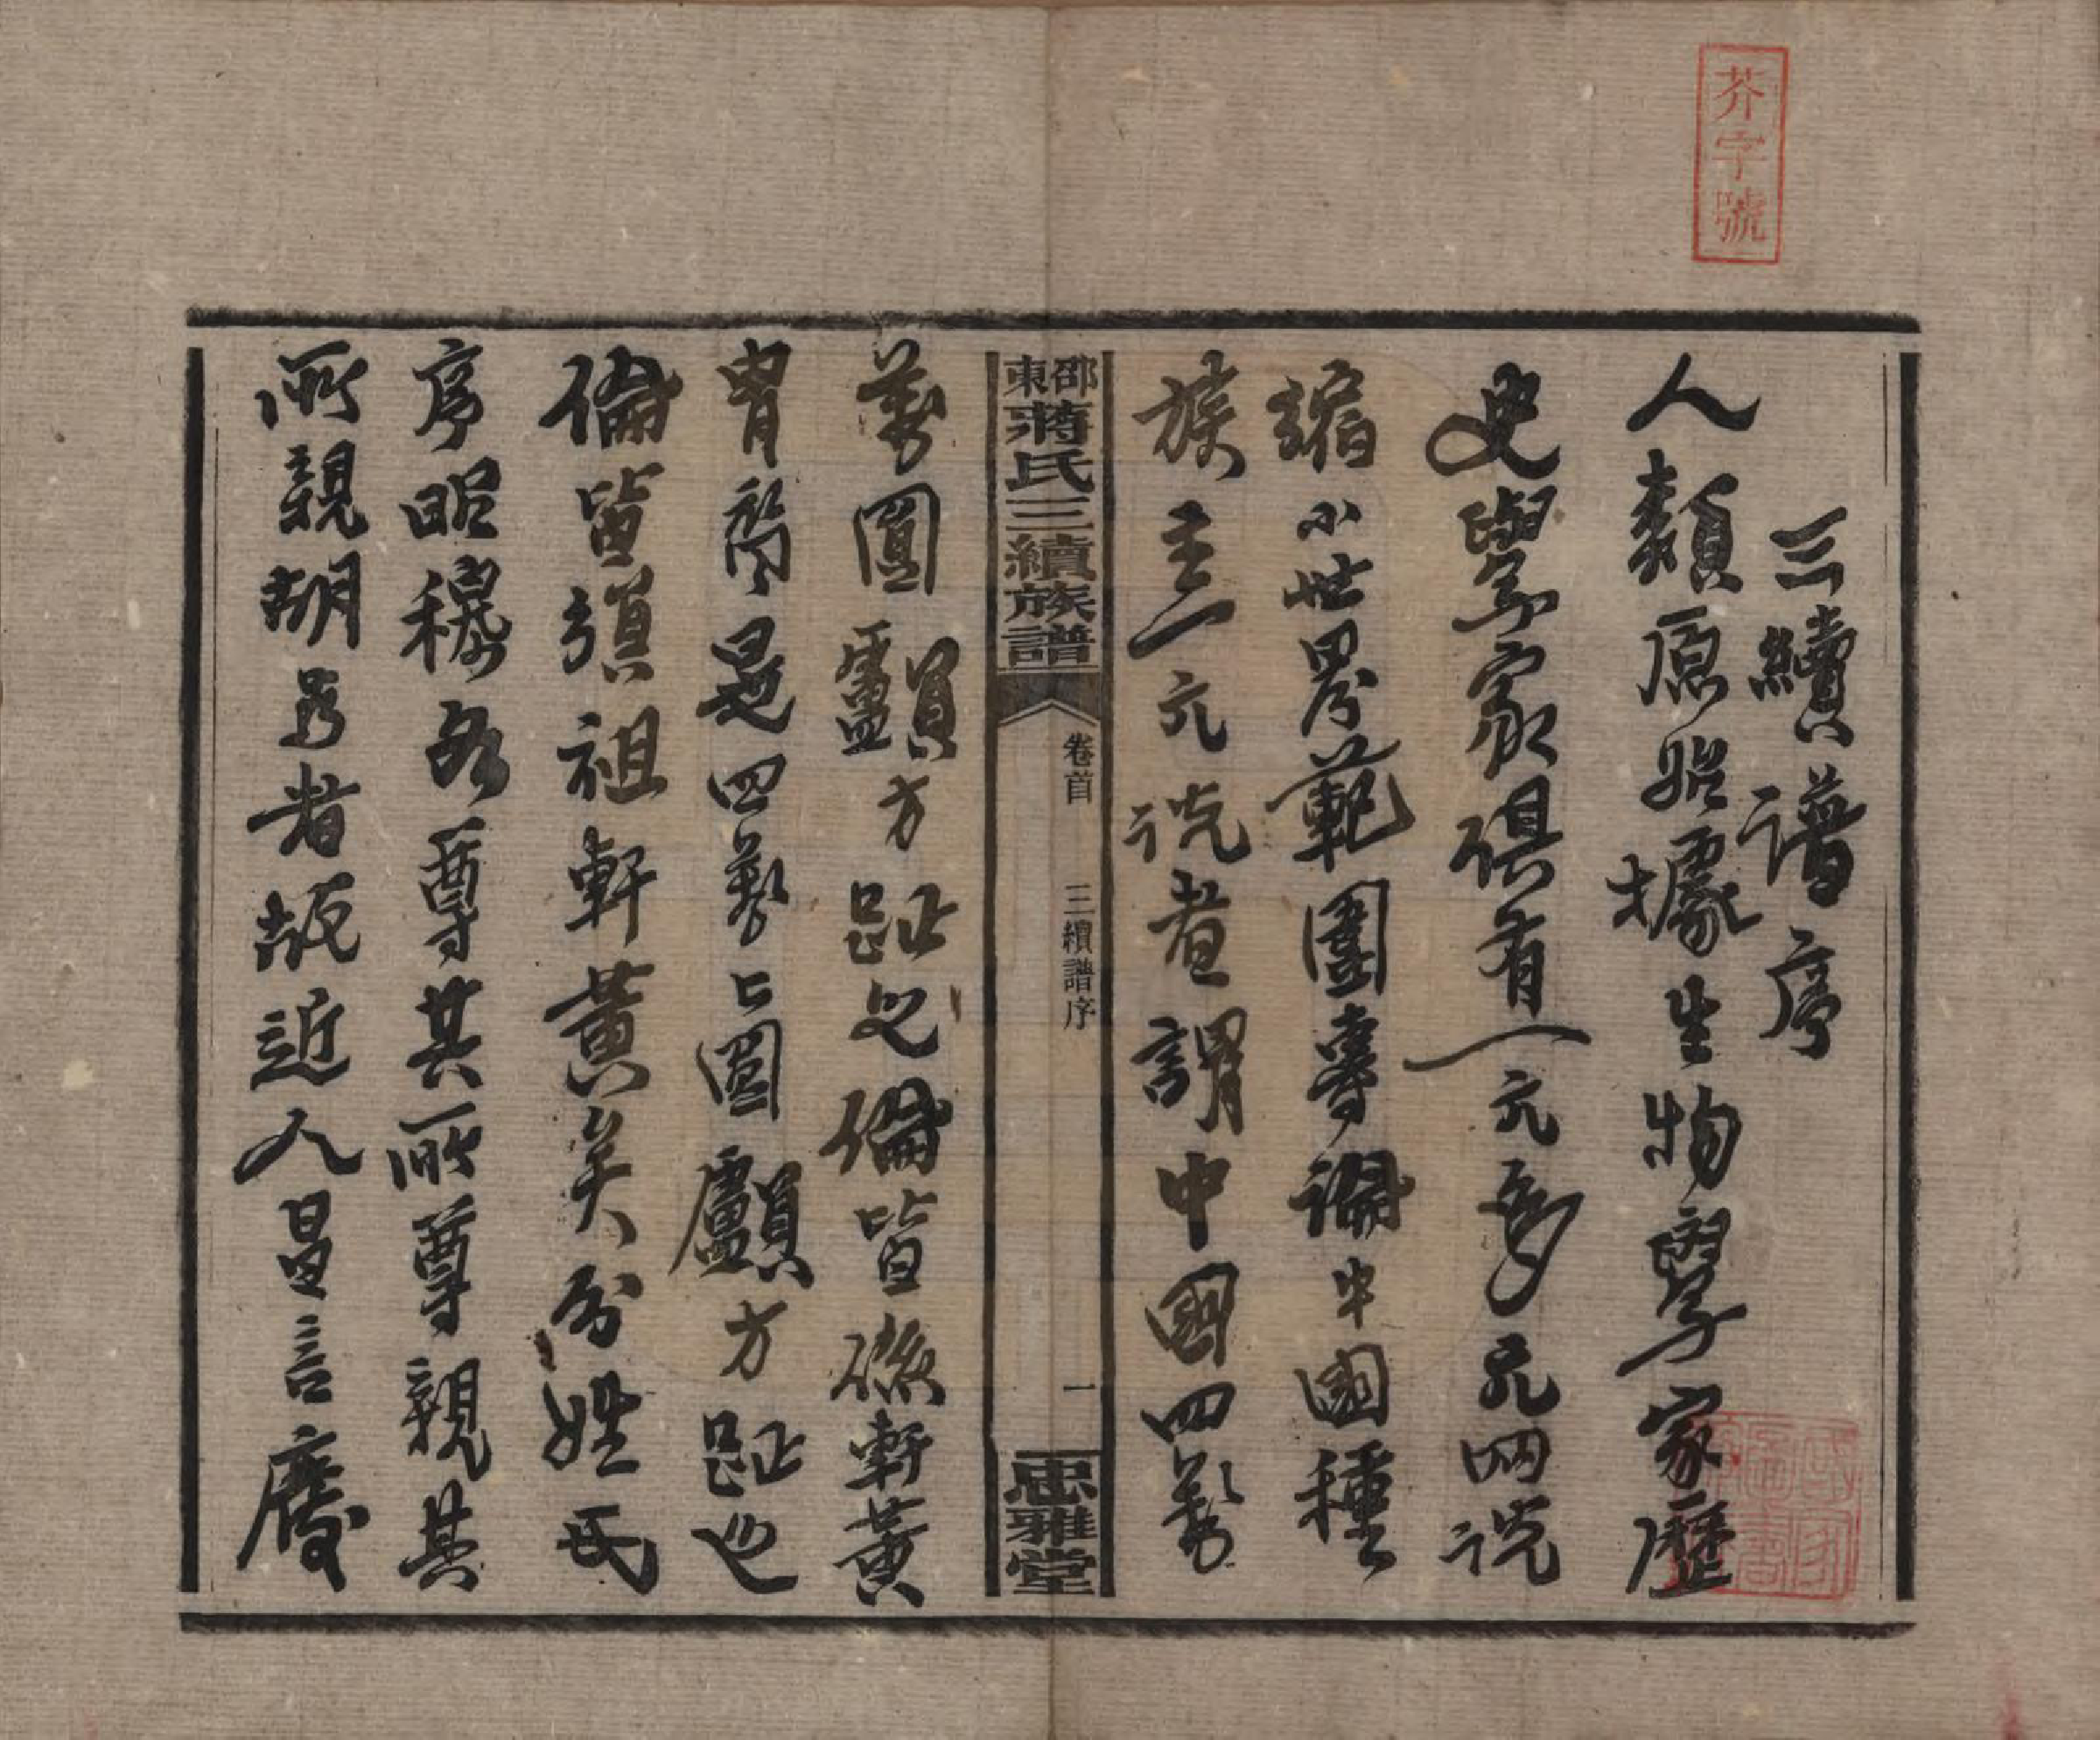 芥字號
三續譜序
人類原始據生物學家歷
史學家俱有一元多元兩說
縮小世界範圍專論中國種
族主一元說者謂中國四萬
邵東蔣氏三續族譜
卷首 三續譜序 一
忠雅堂
萬圓顱方趾之倫皆係軒黃
胄裔是四萬萬圓顱方趾之
倫皆須祖軒黃矣分姓氏
序昭穆各尊其所尊親其
所親胡為者故近人昌言廢